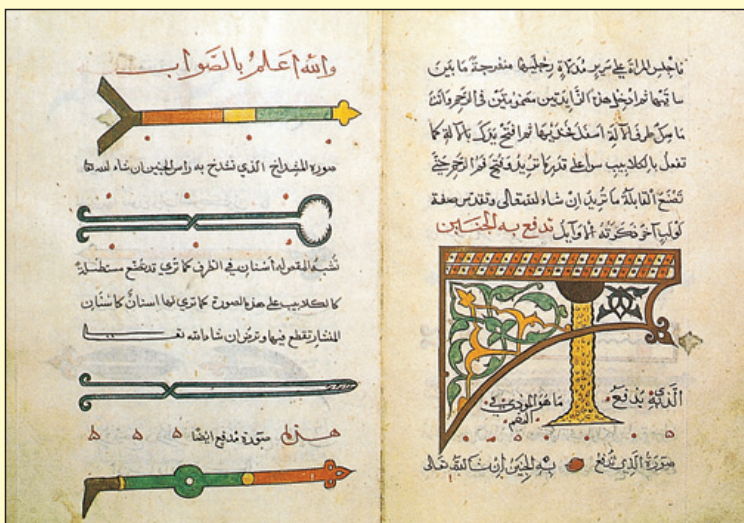 فاجلس المراة على سرير مدلاة رجليها منفرجة ما بين
ساقيها ثم ادخل هذه الزايدتين مضمومتين في الرحم وانت
ماسك طرف الآلة اسفل فخذيها ثم افتح يدك بالآلة كما
تفعل بالكلاليب سواء على قدر ما تريد فتح فم الرحم حتى
تصنع القابلة ما تريد ان شاء الله تعالى صفة
لولب آخر ذكرته الاوايل تدفع به الجنين
الذي يدفع ما هو في
صورة الذي تدفع به الجنين ان شا الله تعالى
والله اعلم بالصواب
صورة المشداخ الذي تشدخ به راس الجنين ان شاء الله تعا
تشبه المقص له اسنان في الطرف كما ترى قد تصنع مستطيلة
كالكلاليب على هذه الصورة كما ترى لها اسنان كاسنان
المنشار تقطع فيها وترض ان شاء الله تعا
هذه صورة مدفع ايضا